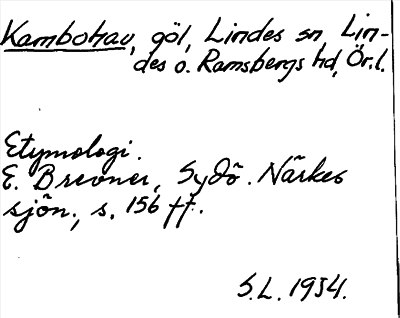 Kambohav, göl, Lindes sn, Lin-
des o. Ramsbergs hd, Ör.l.
Etymologi.
E. Brevner, Sydö. Närkes
sjön., s. 156 ff.
S.L. 1934.